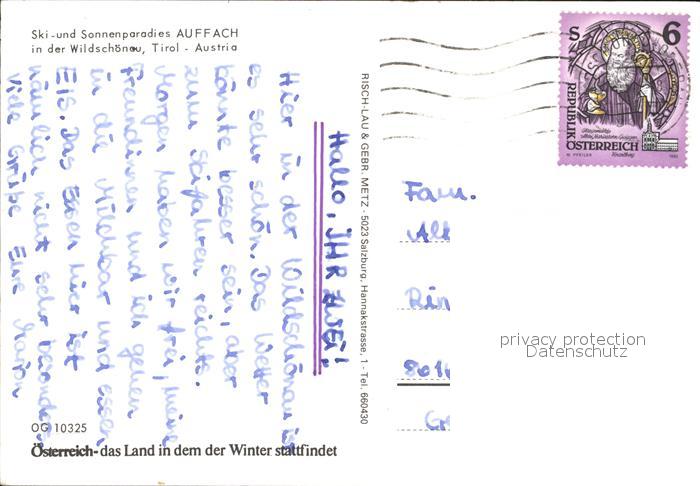 Ski-und Sonnenparadies AUFFACH
in der Wildschönau, Tirol - Austria
Hallo, IHR ZWEI!
Hier in der Wildschönau ist
es sehr schön. Das Wetter
könnte besser sein, aber
zum Skifahren reichts.
Morgen haben wir frei, meine
Freundinnen und ich gehen
in die Milchbar und essen
Eis. Das Essen hier ist
nämlich nicht sehr besonders.
Viele Grüße Eure Marion
OG 10325
Österreich-das Land in dem der Winter stattfindet
RISCH-LAU & GEBR. METZ - 5023 Salzburg, Hannakstrasse, 1 - Tel. 660430
S 6
REPUBLIK
ÖSTERREICH
Fam.
privacy protection
Datenschutz